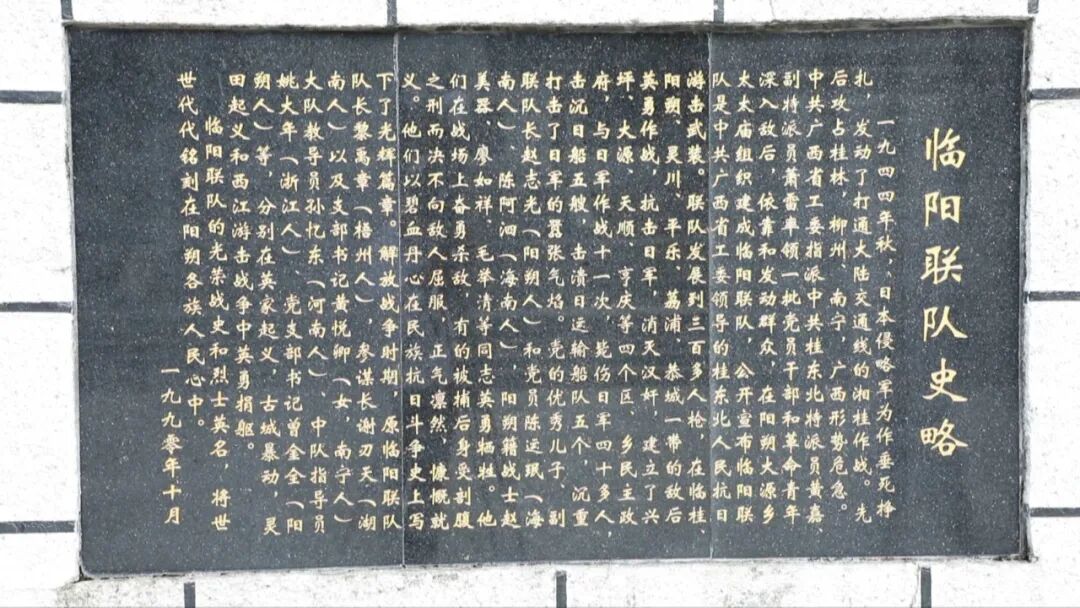 临阳联队史略
一九四四年秋，日本侵略军为作垂死挣
扎，发动了打通大陆交通线的湘桂作战。先
后攻占桂林、柳州、南宁，广西形势危急。
中共广西省工委指派中共桂东北特派员黄嘉、
副特派员萧雷率领一批党员干部和革命青年
深入敌后，依靠和发动群众，在阳朔大源乡
太太庙组织建成临阳联队，公开宣布临阳联
队是中共广西省工委领导的桂东北人民抗日
游击武装。联队发展到三百多人枪，在临桂
阳朔、灵川、平乐、荔浦、恭城一带的敌后
英勇作战，抗击日军，消灭汉奸，建立了兴
坪、大源、天顺、亨庆等四个区、乡民主政
府，与日军作战十一次，毙伤日军四十多人，
击沉日船五艘，击溃日运输船队五个，沉重
打击了日军的嚣张气焰。党的优秀儿子、副
联队长赵志光（阳朔人）和党员陈运珉（海
南人）、陈阿泗（海南人），阳朔籍战士赵
美器、廖如祥、毛举清等同志英勇牺牲。他
们在战场上奋勇杀敌，有的被捕后身受剖腹
之刑而决不向敌人屈服，正气凛然，慷慨就
义。他们以碧血丹心在民族抗日斗争史上写
下了光辉篇章。解放战争时期，原临阳联队
队长黎禹章（梧州人），参谋长谢刃天（湖
南人）以及支部书记黄悦卿（女 南宁人）
大队教导员孙忆东（河南人）、中队指导员
姚大年（浙江人）、党支部书记曾金全（阳
朔人）等，分别在英家起义，古城暴动，灵
田起义和西江游击战争中英勇捐躯。
临阳联队的光荣战史和烈士英名，将世
世代代铭刻在阳朔各族人民心中。
一九九零年十月